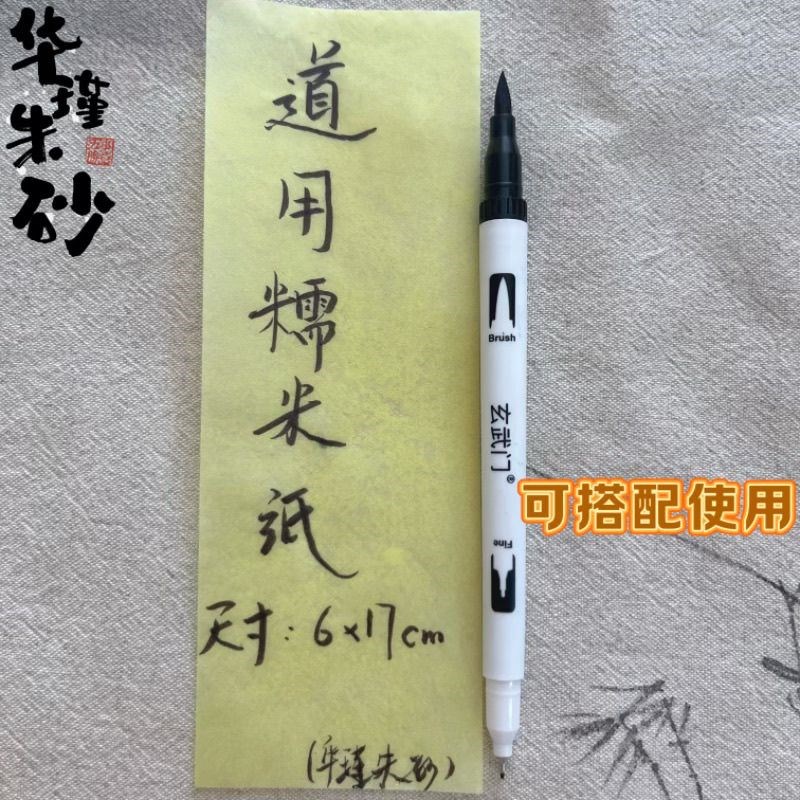 华瑾朱砂
道用糯米纸
尺寸：6×17cm
（华瑾朱砂）
Brush
玄武门®
Fine
可搭配使用